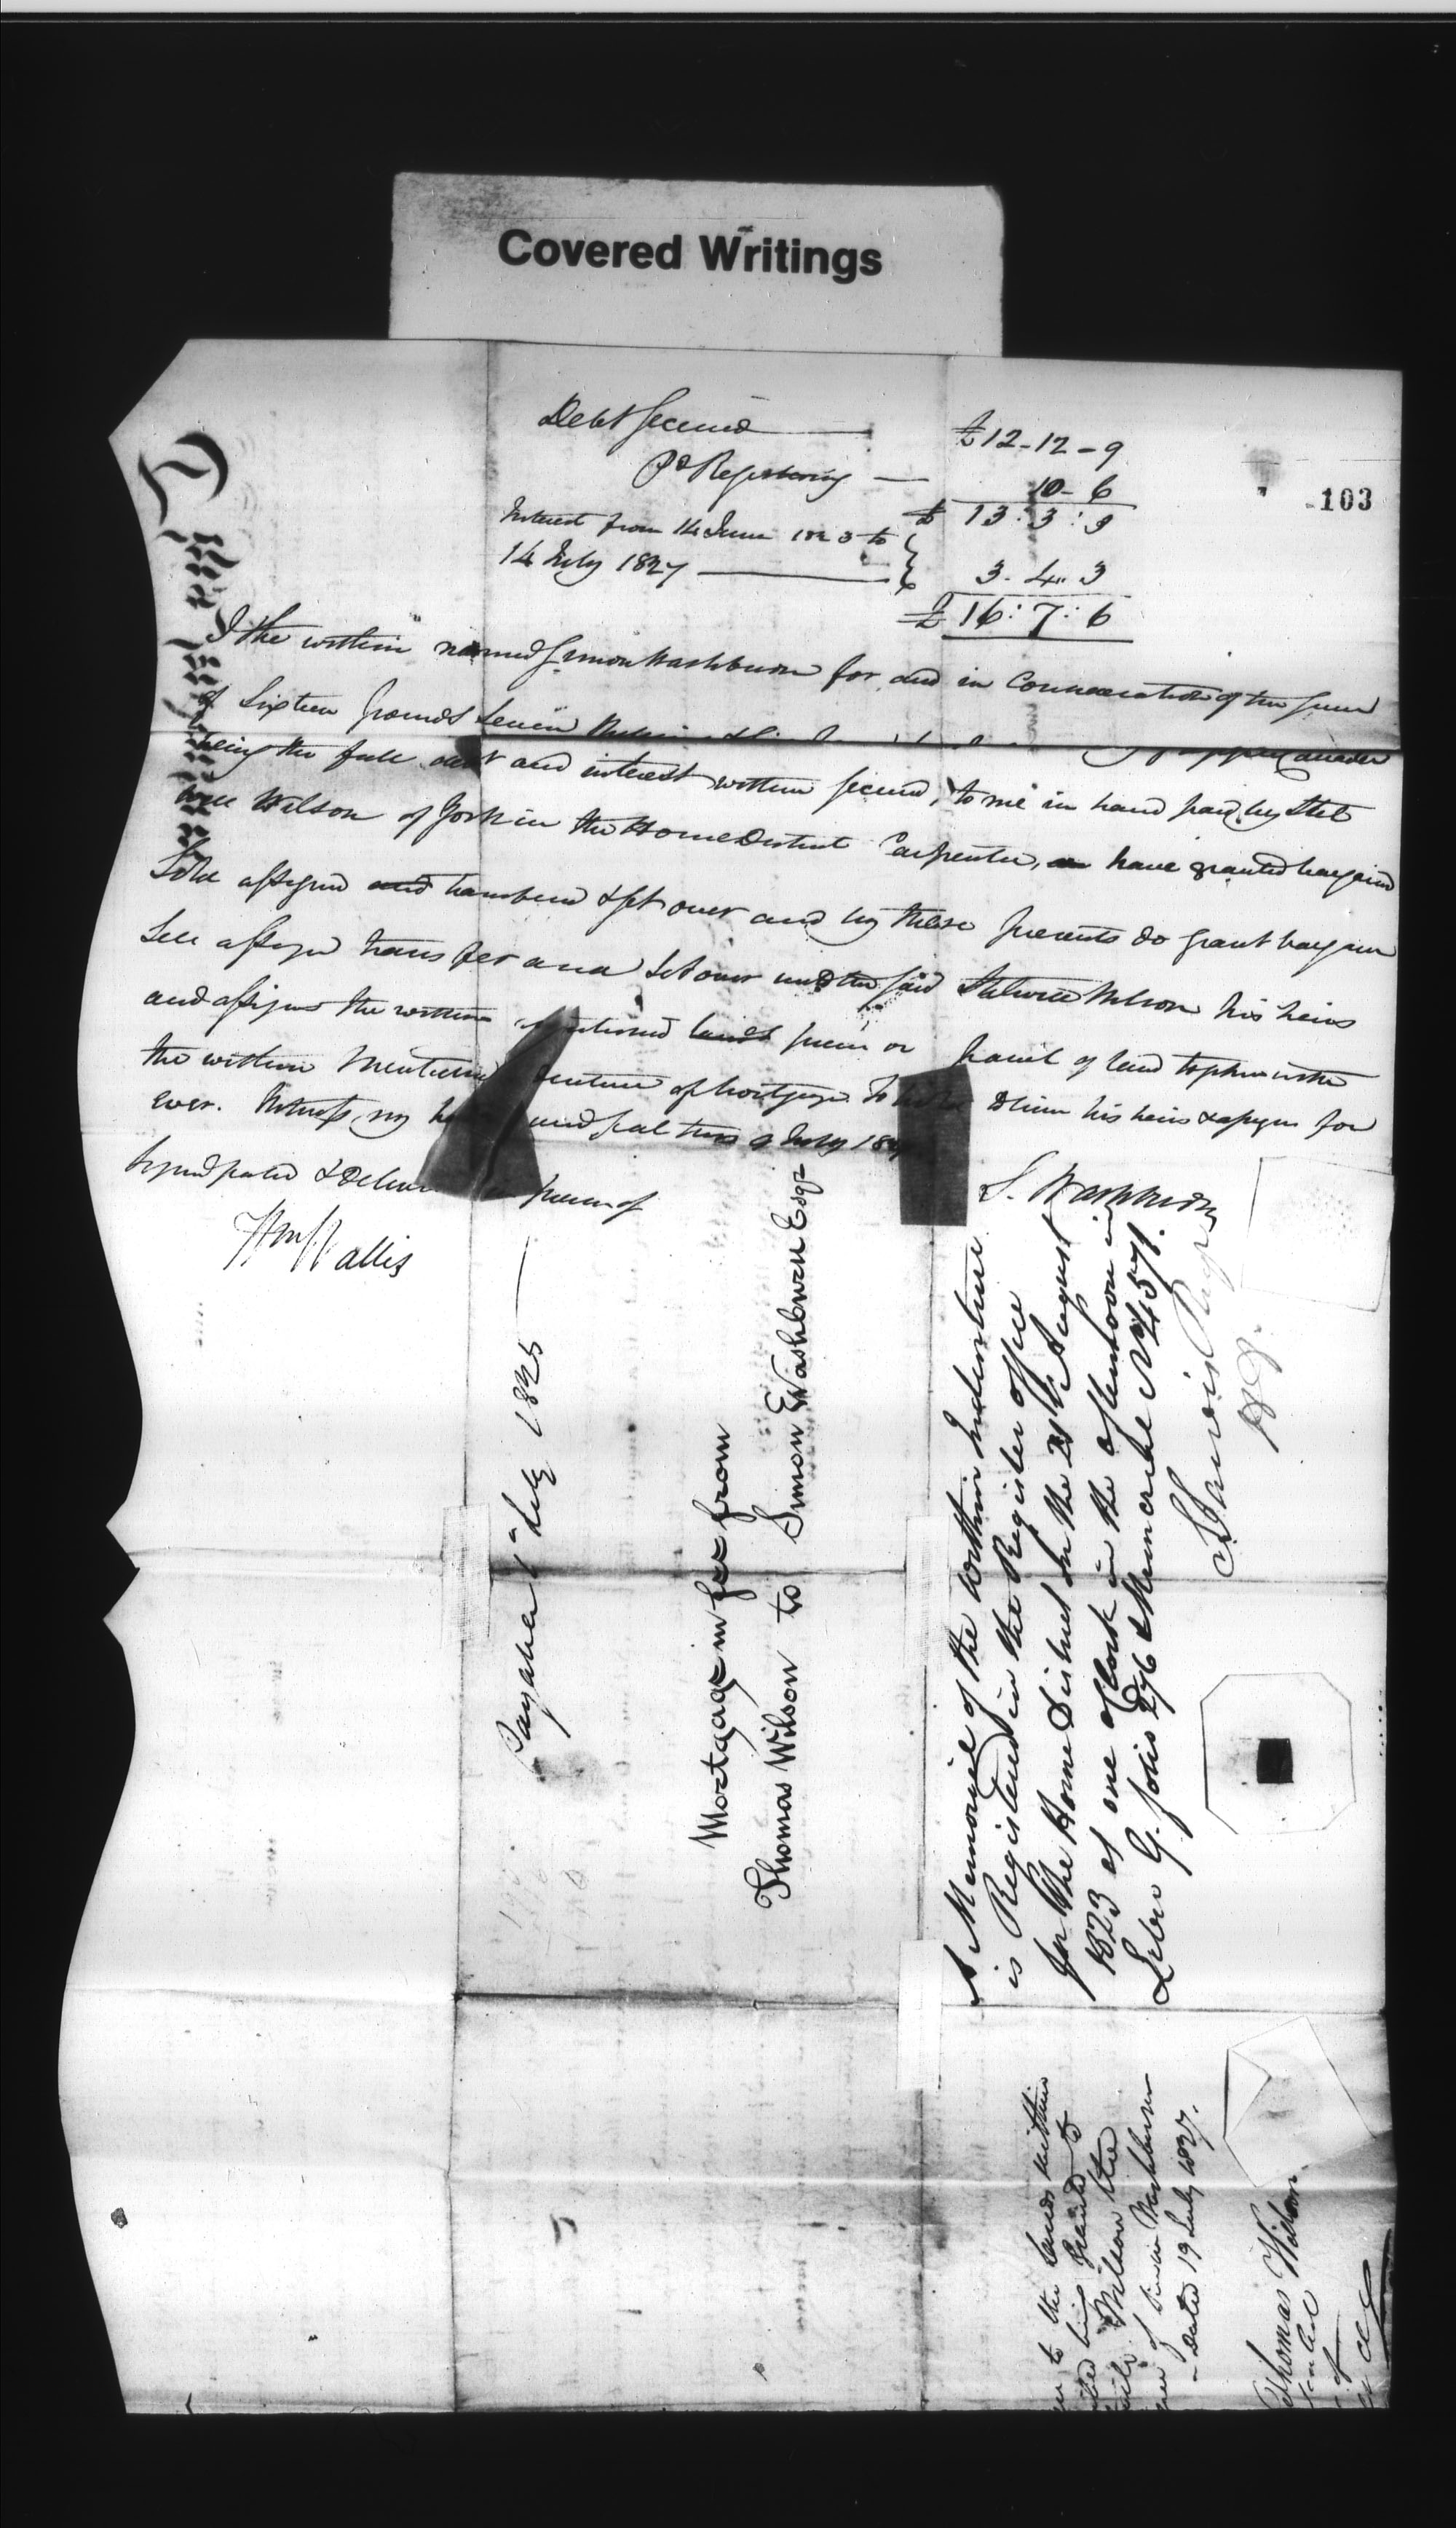 Covered Writings
103
Debt secured £12-12-9
Pd Registering 10-6
£ 13:3:3
Interest from 14 June 1823 to
14 July 1827 3.4.3
£ 16:7:6
I the within named Simon Washburn for and in Consideration of the sum
of Sixteen pounds Seven
being the full debt and interest within secured, to me in hand paid by Stil
well Wilson of York in the Home District Carpenter, have granted bargained
Sold assigned and transferred & set over and by these presents do grant bargain
Sell assign transfer and Set over unto the said Stilwell Wilson his heirs
and assigns the within mentioned lands piece or parcel of land together with
the within Mentioned Indenture of Mortgage To hold to him his heirs & assigns for
ever. Witness my hand and seal this July 1827
Signed sealed & Deliver in presence of
S. Washburn
Wm Wallis
Payable 1st July 1825
Mortgage in fee from
Thomas Wilson to Simon Washburn Esqr
A Memorial of the within Indenture
is Registered in the Register office
for the Home District on the 21st August
1823 at one oClock in the afternoon in
Liber G. folis 276 & Memorial No 4571.
to the lands within
being granted to
Wilson the
of Simon Washburn
Dated 19 July 1827.
Thomas Wilson
of